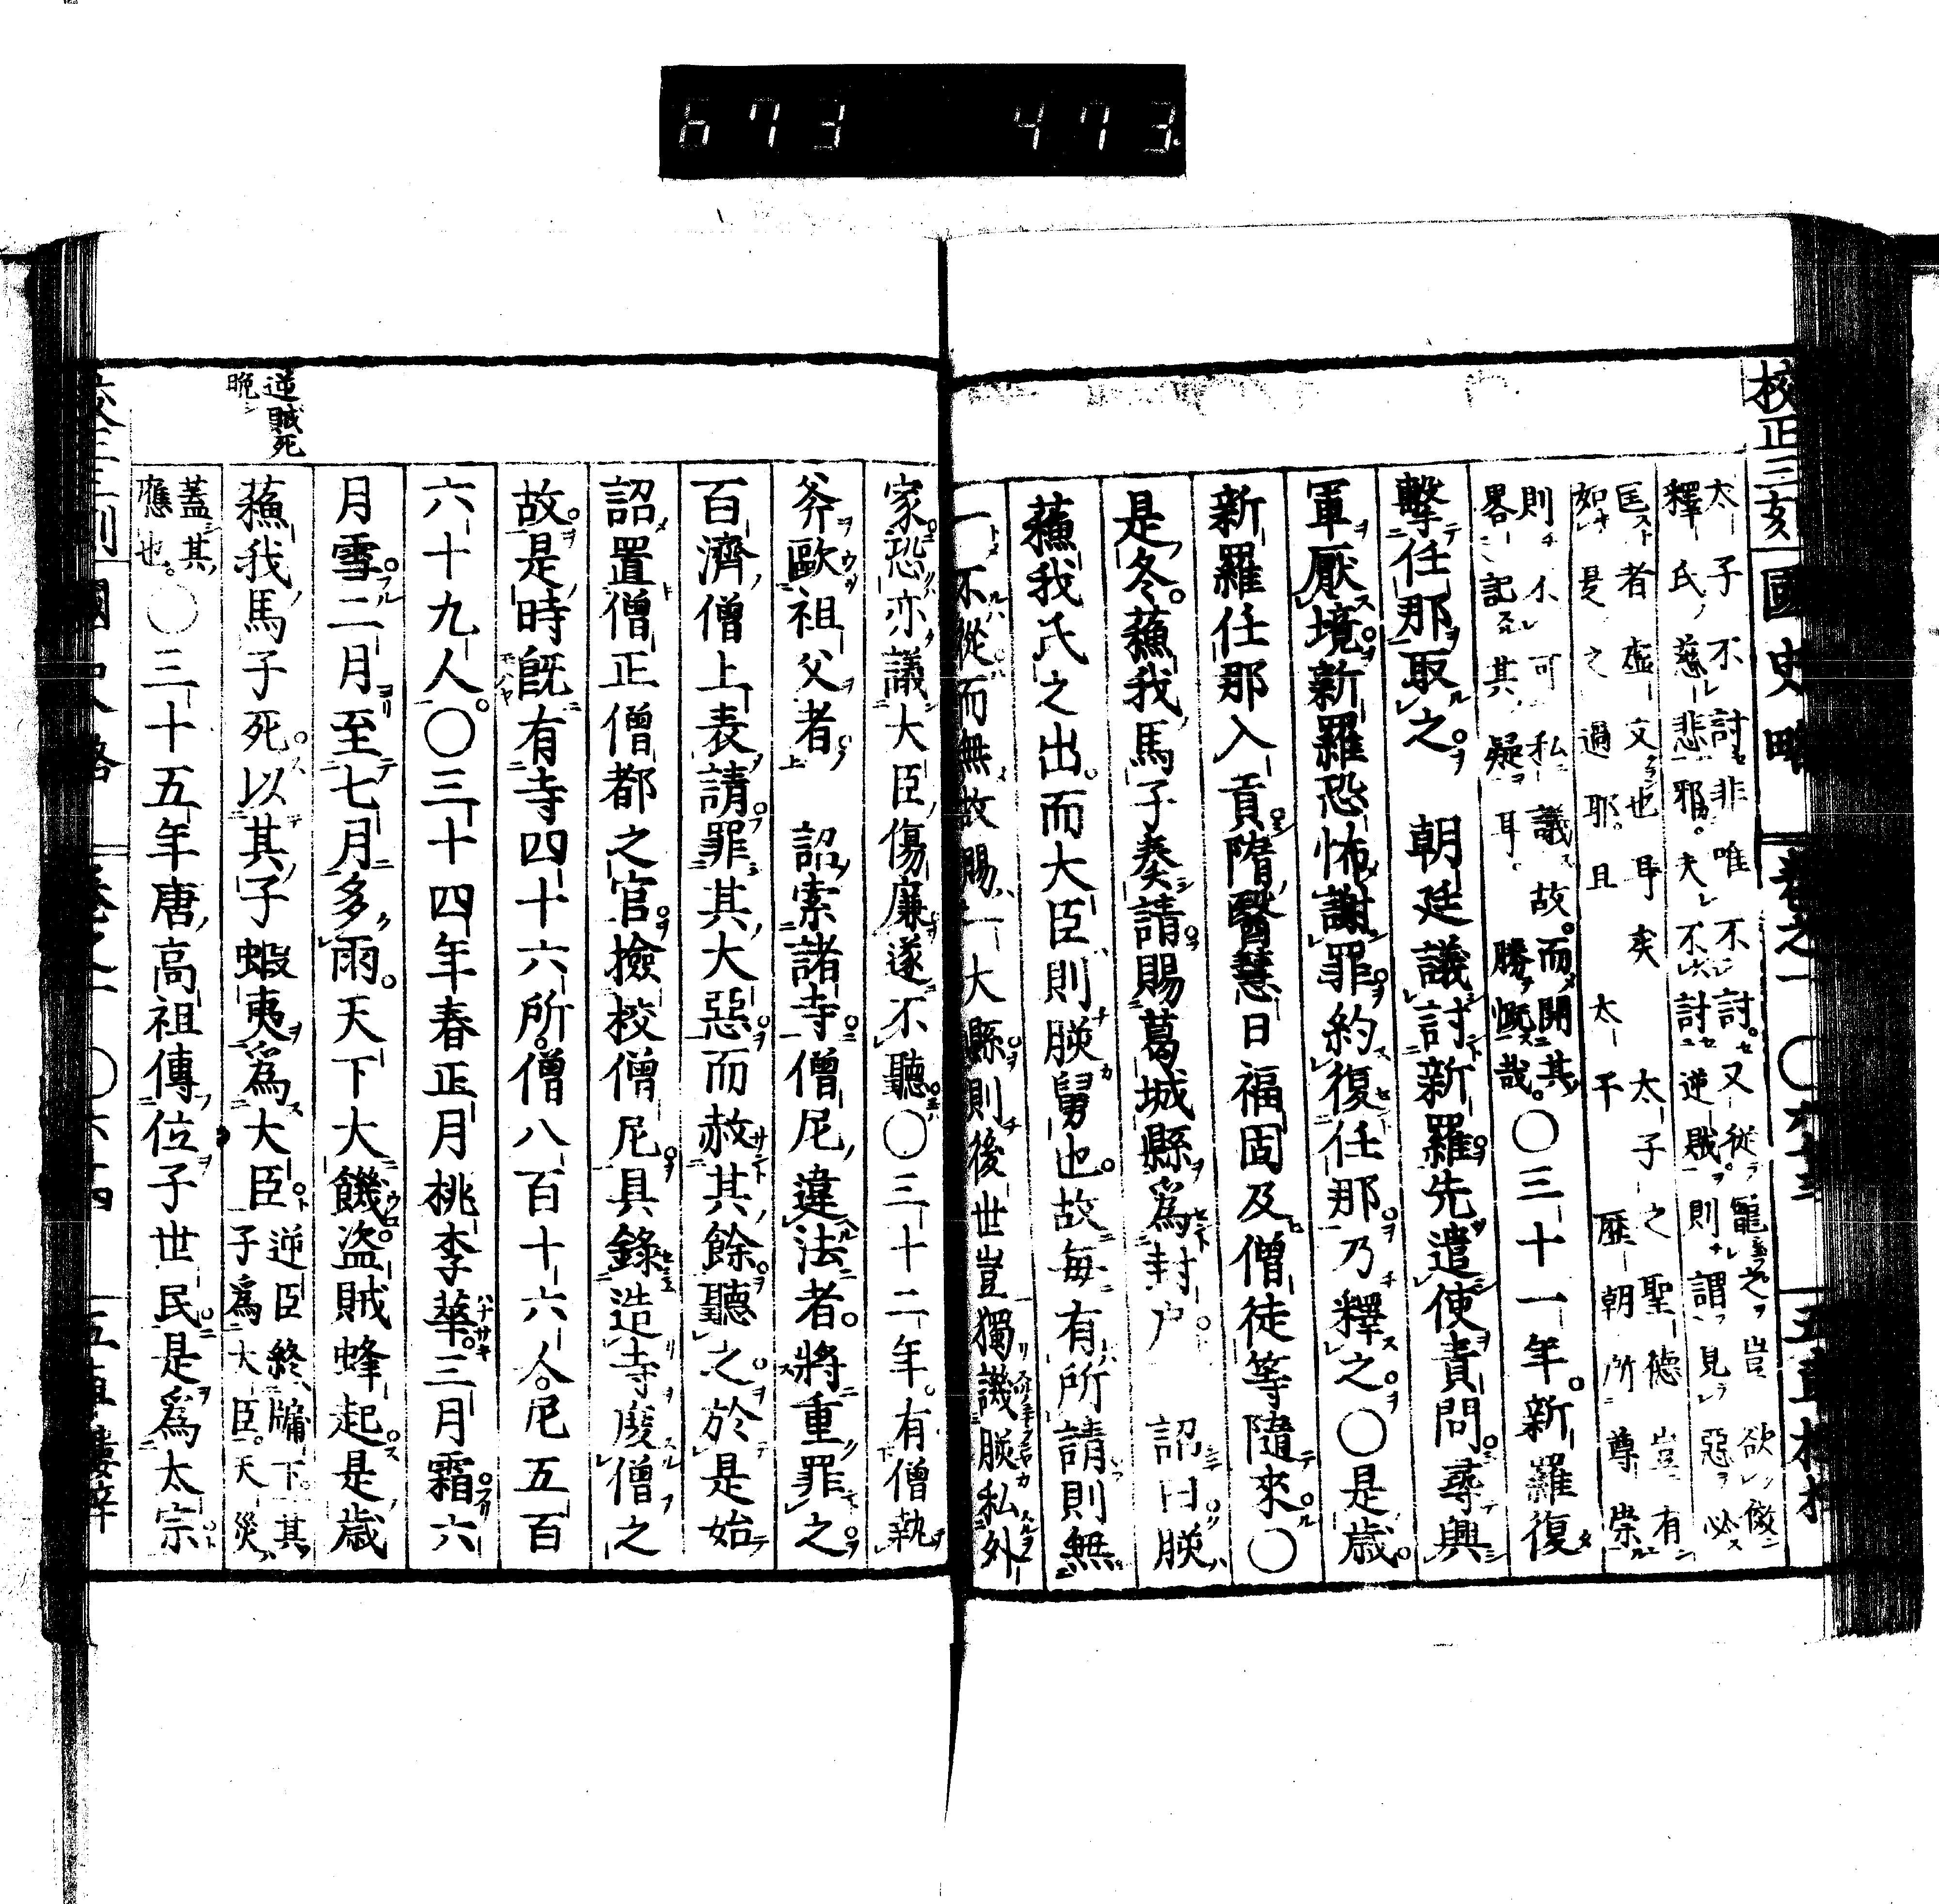 673 473
校正三刻 國史略 卷之一 〇六十三
太子不討非唯不討又從寵之豈欲倣
釋氏慈悲邪夫不討逆賊則謂見惡必
匡者虚文也耳矣 太子之聖德豈有
如是之過耶且 太子歷朝所尊崇
則不可私議故而開其
畧記其疑耳 勝慨哉
〇三十一年新羅復
擊任那取之 朝廷議討新羅先遣使責問尋興
軍壓境新羅恐怖謝罪約復任那乃釋之〇是歲
新羅任那入貢隋醫慧日福固及僧徒等隨來〇
是冬蘓我馬子奏請賜葛城縣爲封戸 詔曰朕
蘓我氏之出而大臣則朕舅也故每有所請則無
一不從而無故賜一大縣則後世豈獨譏朕私外
家恐亦議大臣傷廉遂不聽〇三十二年有僧執
斧歐祖父者 詔索諸寺僧尼違法者將重罪之
百濟僧上表請罪其大惡而赦其餘聽之於是始
詔置僧正僧都之官撿校僧尼具錄造寺度僧之
故是時旣有寺四十六所僧八百十六人尼五百
六十九人〇三十四年春正月桃李華三月霜六
月雪二月至七月多雨天下大饑盜賊蜂起是歲
逆賊死
晩
蘓我馬子死以其子蝦夷爲大臣
逆臣終牖下其
子爲大臣天災
蓋其
應也
〇三十五年唐高祖傳位子世民是爲太宗
國史略 卷之一 〇六十四 五車樓梓